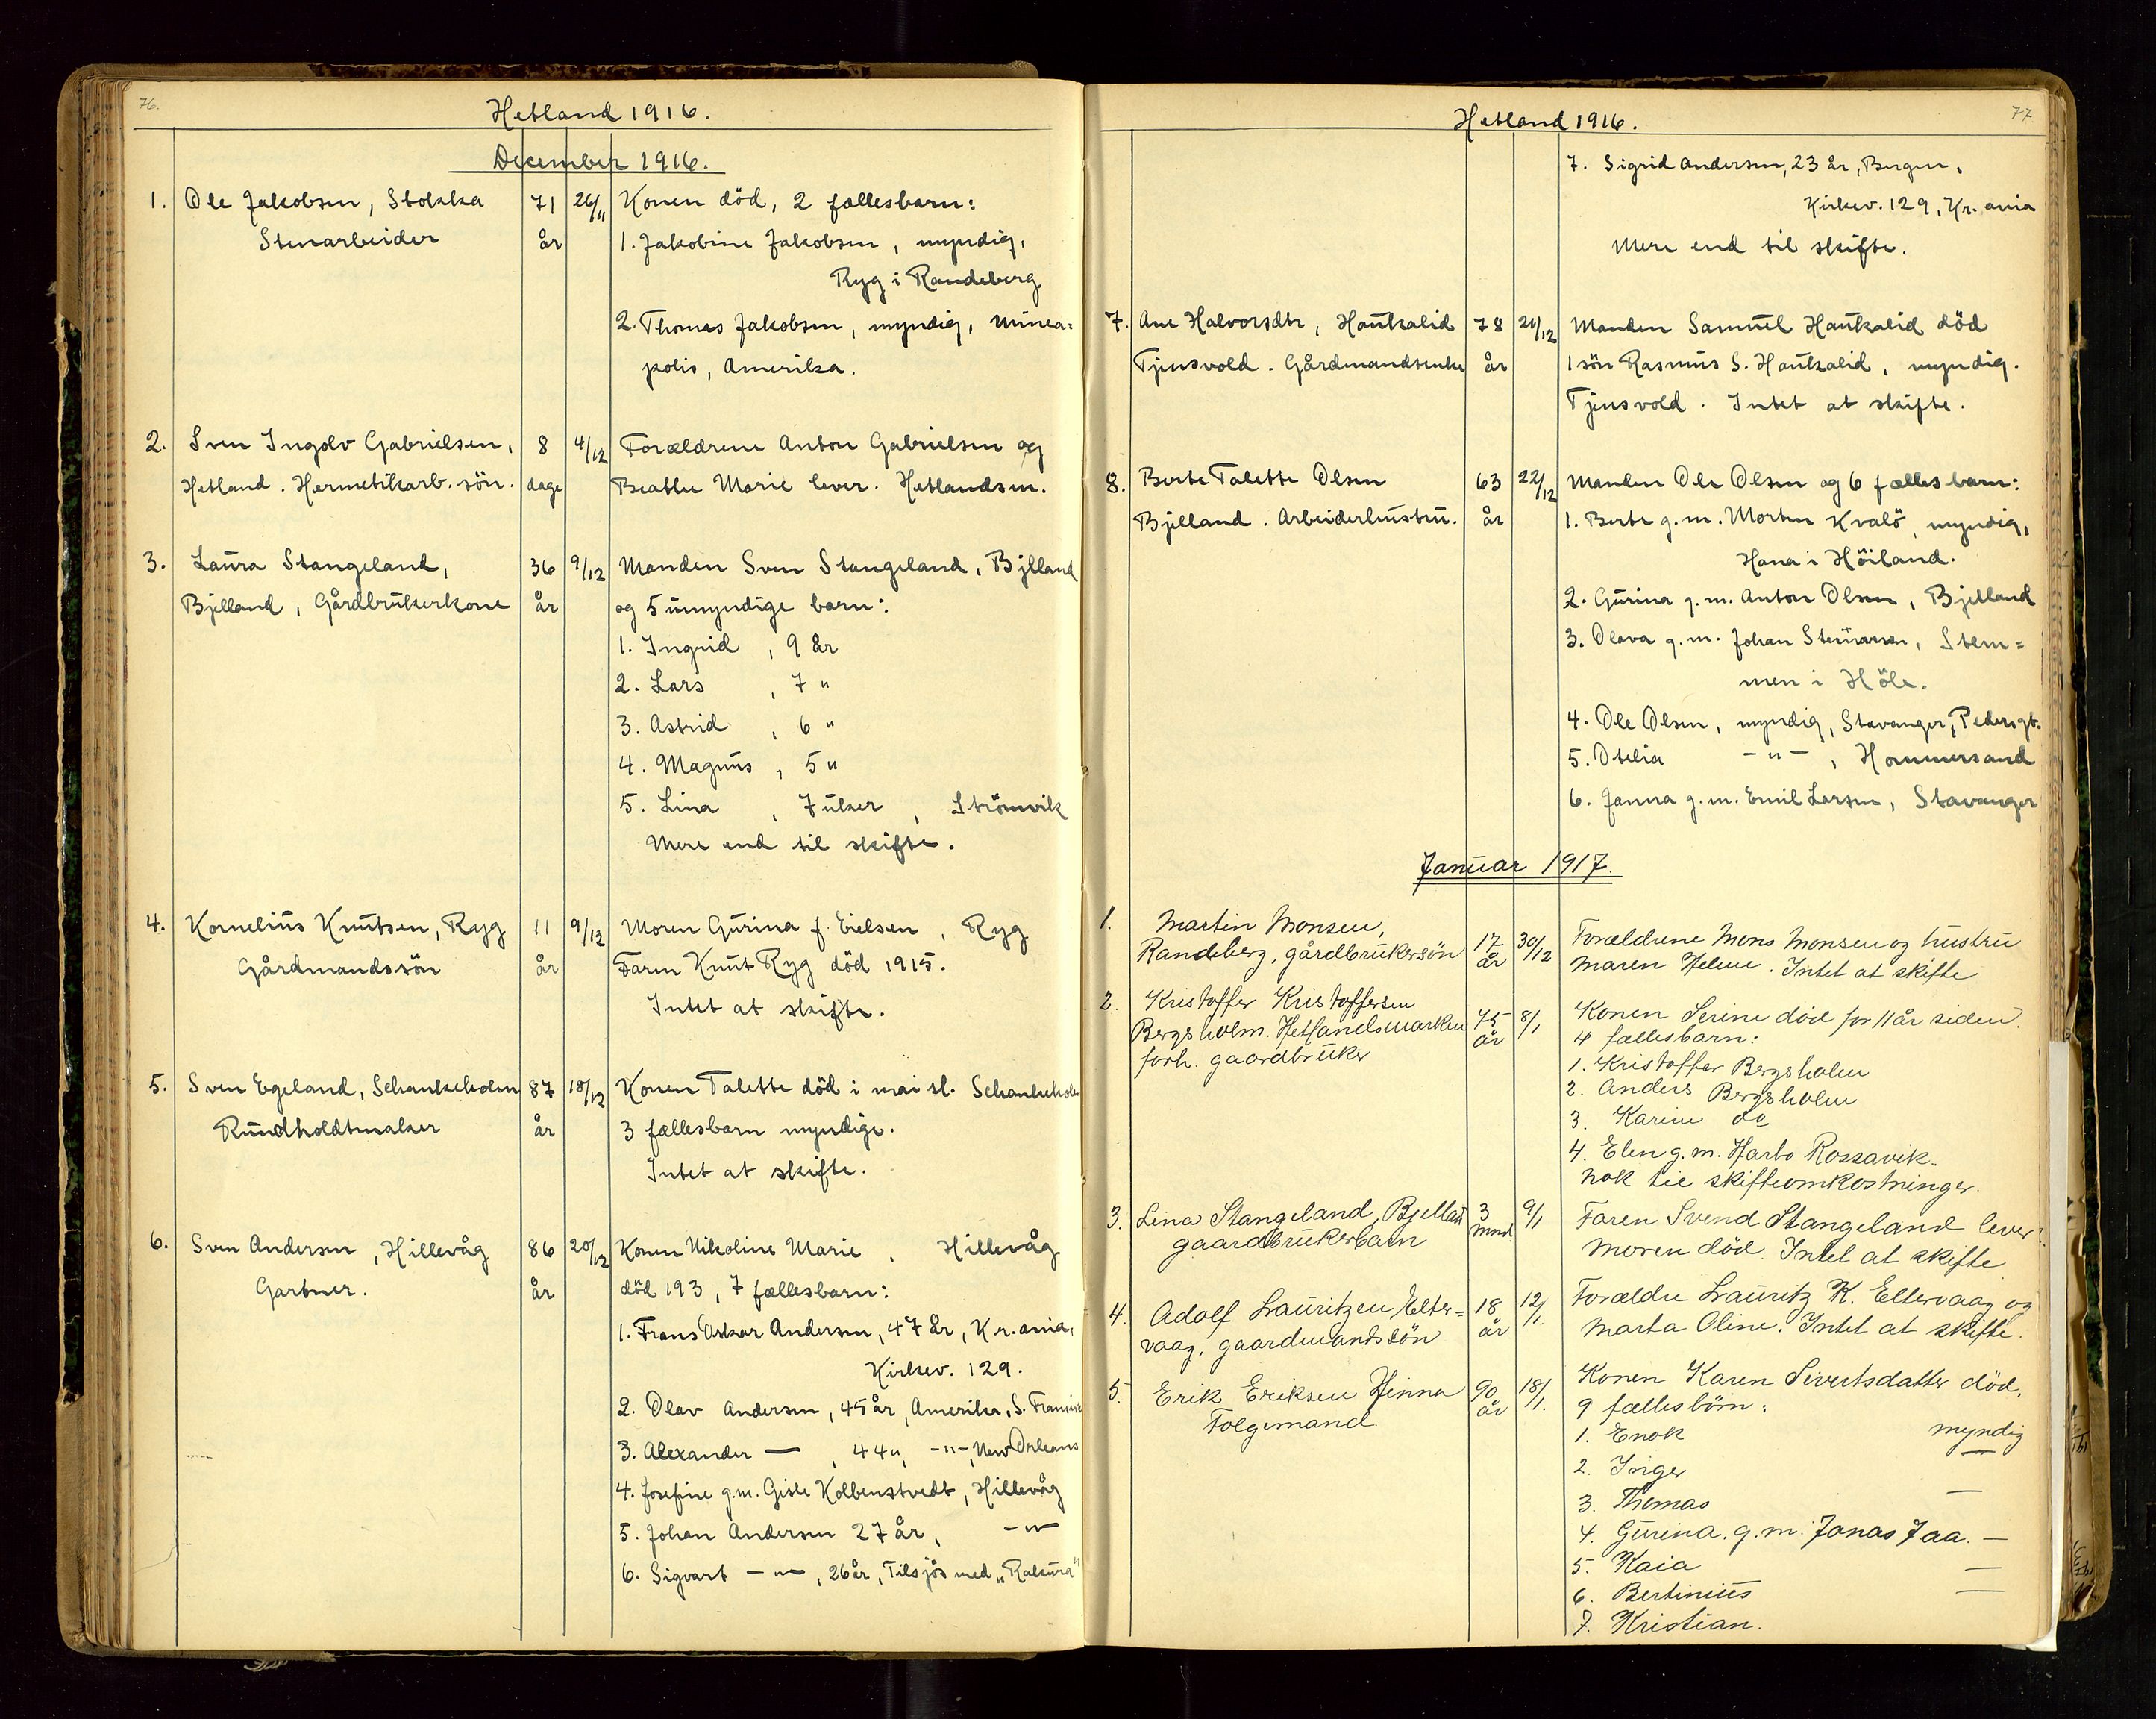 76.
Hetland 1916.
December 1916.
1. Ole Jakobsen, Stokka 71 26/11 Konen död, 2 fællesbarn:
Stenarbeider år 1. Jakobine Jakobsen, myndig,
Ryg i Randeberg
2. Thomas Jakobsen, myndig, Minea=
polis, Amerika.
2. Sven Ingolv Gabrielsen, 8 4/12 Forældrene Anton Gabrielsen og
Hetland. Hermetikarb. sön. dage Beathe Marie lever. Hetlandsm.
3. Laura Stangeland, 36 9/12 Manden Sven Stangeland, Bjelland
Bjelland, Gårdbrukerkone år og 5 umyndige barn:
1. Ingrid, 9 år
2. Lars, 7 "
3. Astrid, 6 "
4. Magnus, 5 "
5. Lina, 7 uker, Strömvik
Mere end til skifte.
4. Kornelius Knutsen, Ryg 11 9/12 Moren Gurina f. Eielsen, Ryg
Gårdmandssön år Faren Knut Ryg död 1915.
Intet at skifte.
5. Sven Egeland, Schankeholm 87 18/12 Konen Talette död i mai sl. Schankeholm
Rundholdtmaker år 3 fællesbarn myndige.
Intet at skifte.
6. Sven Andersen, Hillevåg 86 20/12 Konen Nikoline Marie, Hillevåg
Gartner. år död 193, 7 fællesbarn:
1. Frans Oskar Andersen, 47 år, Kr.ania,
Kirkev. 129.
2. Olav Andersen, 45 år, Amerika, S. Francisk
3. Alexander —, 44 ", -"-, New Orleans
4. Josefine g.m. Giste Kolbenstvedt, Hillevåg
5. Johan Andersen 27 år, -"-
6. Sigvart -"-, 26 år, Tilsjös med "Rakura"
77
Hetland 1916.
7. Sigrid Andersen, 23 år, Bergen,
Kirkev. 129, Kr.ania
Mere end til skifte.
7. Ane Halvorsdtr, Haukalid 78 21/12 Manden Samuel Haukalid död
Tjensvold. Gårdmandsenke år 1 sön Rasmus S. Haukalid, myndig.
Tjensvold. Intet at skifte.
8. Berte Talette Olsen 63 22/12 Manden Ole Olsen og 6 fællesbarn:
Bjelland. Arbeiderhustru. år 1. Berte g.m. Morten Kvalö, myndig,
Hana i Höiland.
2. Gurina g.m. Anton Olsen, Bjelland
3. Olava g.m. Johan, Stem=
men i Höle.
4. Ole Olsen, myndig, Stavanger, Pedersgt.
5. Otelia -"-, Hommersand
6. Janna g.m. Emil Larsen, Stavanger
Januar 1917.
1. Martin Monsen,
Randeberg, gårdbrukersön 17 år 30/12 Forældrene Mons Monsen og hustru
Maren Helene. Intet at skifte
2. Kristoffer Kristoffersen
Bergsholm. Hetlandsmarken 75 år 8/1 Konen Serine död for 11 år siden.
forh. gaardbruker 4 fællesbarn:
1. Kristoffer Bergsholm
2. Anders Bergsholm
3. Karine do
4. Elen g.m. Harbo Rossavik.
Nok til skifteomkostninger.
3. Lina Stangeland, Bjelland 3 9/1 Faren Svend Stangeland lever.
gaardbrukerbarn mnd. Moren död. Intet at skifte
4. Adolf Lauritzen Elter= 18 12/1. Forældre Lauritz K. Eltervaag og
vaag, gaardmandssön år Marta Oline. Intet at skifte.
5. Erik Eriksen Hinna 90 18/1. Konen Karen Sivertsdatter död,
Folgemand. år 9 fællesbörn:
1. Enok myndig
2. Inger —
3. Thomas —
4. Gurina. g.m. Jonas Jaa. —
5. Kaia —
6. Bertinius —
7. Kristian.